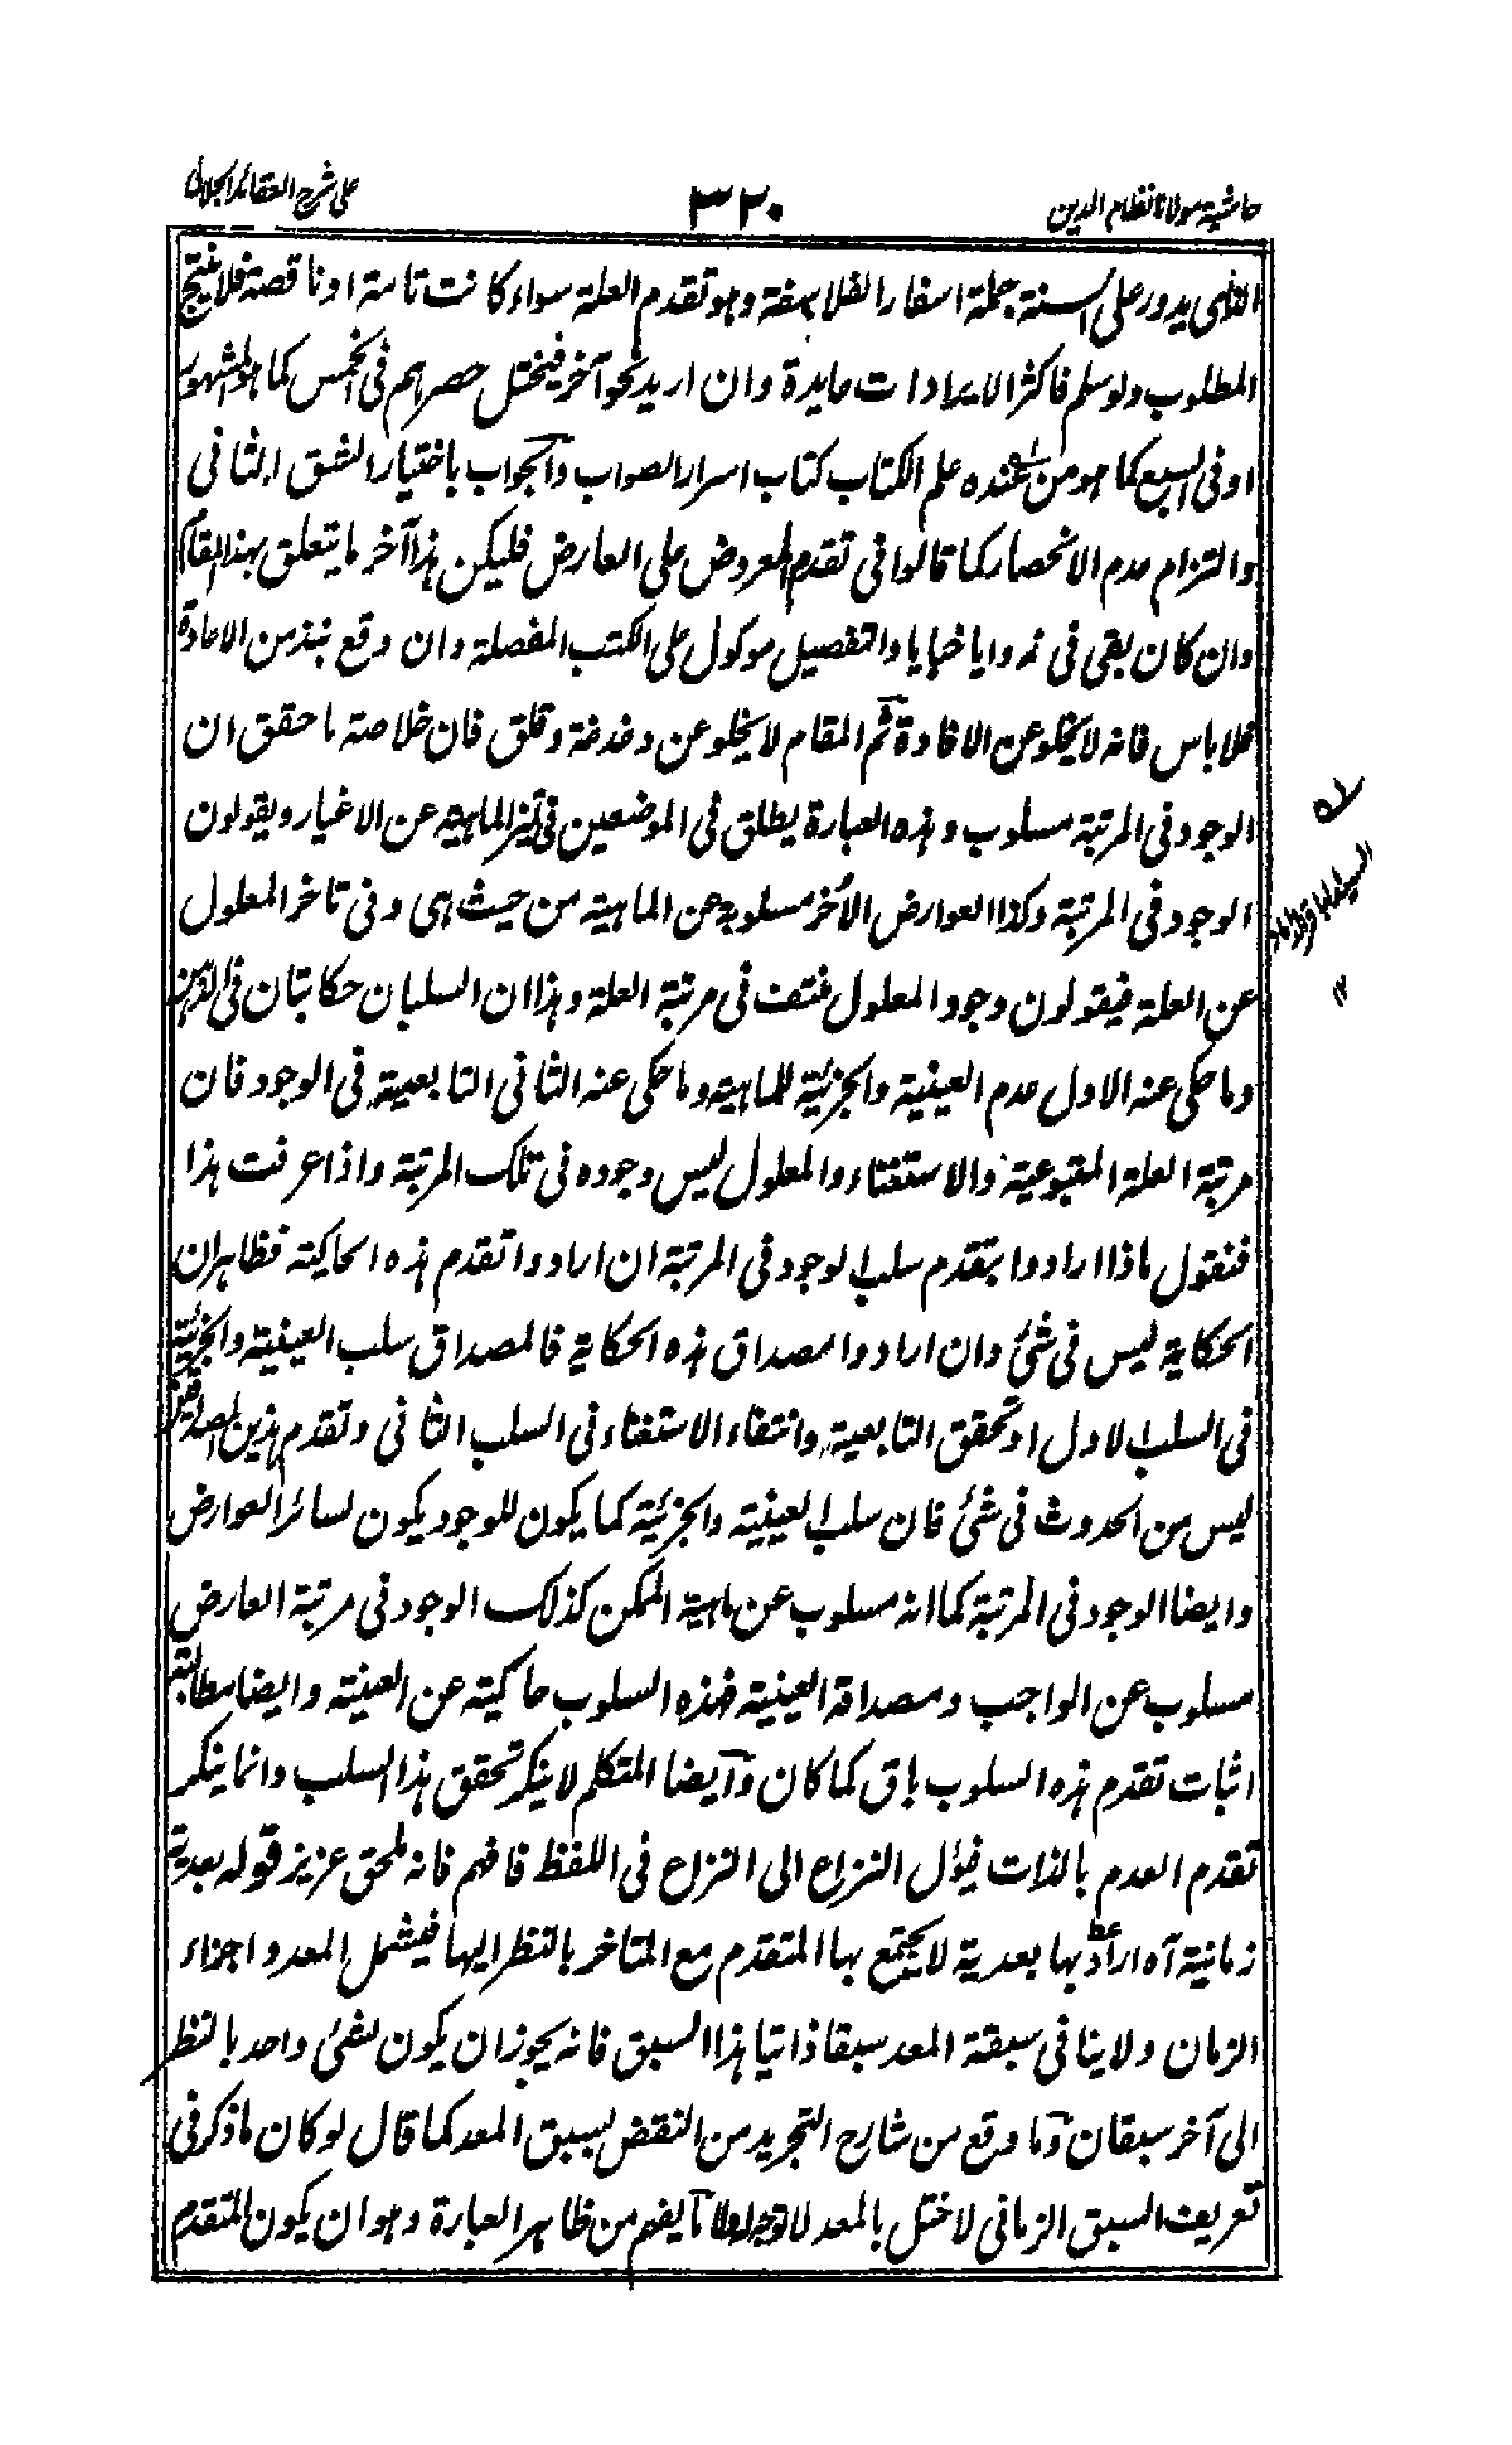 حاشیة مولانا نظام الدین
۳۲۰
علی شرح العقائد الجلالی
الذی یدور علی السنة جملة اسفار الفلاسفة وهو تقدم العلة سواء کانت تامة او ناقصة فلا ینتج
المطلوب ولو سلم فاکثر الایرادات عایدة وان ارید نحو آخر فیختل حصرهم فی الخمس کما هو المشهور
او فی السبع کما هو من عنده علم الکتاب کتاب اسرار الصواب والجواب باختیار الشق الثانی
والتزام عدم الانحصار کما قالوا فی تقدم المعروض علی العارض فلیکن هذا آخر ما یتعلق بهذا المقام
وان کان بقی فی زوایا خبایا والتفصیل موکول علی الکتب المفصلة وان وقع نبذ من الاعادة
فلا باس فانه لا یخلو عن الافادة ثم المقام لا یخلو عن دغدغة وقلق فان خلاصة ما حقق ان
الوجود فی المرتبة مسلوب وهذه العبارة یطلق فی الموضعین فی تمیز الماهیة عن الاغیار ویقولون
الوجود فی المرتبة وکذا العوارض الأخر مسلوبة عن الماهیة من حیث هی وفی تاخر المعلول
عن العلة فیقولون وجود المعلول منتف فی مرتبة العلة وهذا ان السلبان حکایتان فی الذهن
وما حکی عنه الاول عدم العینیة والجزئیة للماهیة وما حکی عنه الثانی التابعیة فی الوجود فان
مرتبة العلة المتبوعیة والاستغناء والمعلول لیس وجوده فی تلک المرتبة واذا عرفت هذا
فنقول ماذا ارادوا بتقدم سلب الوجود فی المرتبة ان ارادوا تقدم هذه الحاکیة فظاهر ان
الحکایة لیس فی شئ وان ارادوا مصداق هذه الحکایة فالمصداق سلب العینیة والجزئیة
فی السلب الاول او تحقق التابعیة وانتفاء الاستغناء فی السلب الثانی وتقدم هذین المصداقین
لیس من الحدوث فی شئ فان سلب العینیة والجزئیة کما یکون للوجود یکون لسائر العوارض
وایضا الوجود فی المرتبة کما انه مسلوب عن ماهیة الممکن کذلک الوجود فی مرتبة العارض
مسلوب عن الواجب ومصداقه العینیة فهذه السلوب حاکیة عن العینیة وایضا مطالبة
اثبات تقدم هذه السلوب باق کما کان وآیضا المتکلم لا ینکر تحقق هذا السلب وانما ینکر
تقدم العدم بالذات فیؤل النزاع الی النزاع فی اللفظ فافهم فانه لمحق عزیز قوله بعدیة
زمانیة آه اراد بها بعدیة لا یجتمع بها المتقدم مع المتاخر بالنظر الیها فیشمل المعد واجزاء
الزمان ولا ینافی سبقة المعد سبقا ذاتیا هذا السبق فانه یجوز ان یکون لشئ واحد بالنظر
الی آخر سبقان وما وقع من شارح التجرید من النقض لسبق المعد کما قال لو کان ما ذکر فی
تعریف السبق الزمانی لاختل بالمعد لا توجه له لما یفهم من ظاهر العبارة وهو ان یکون المتقدم